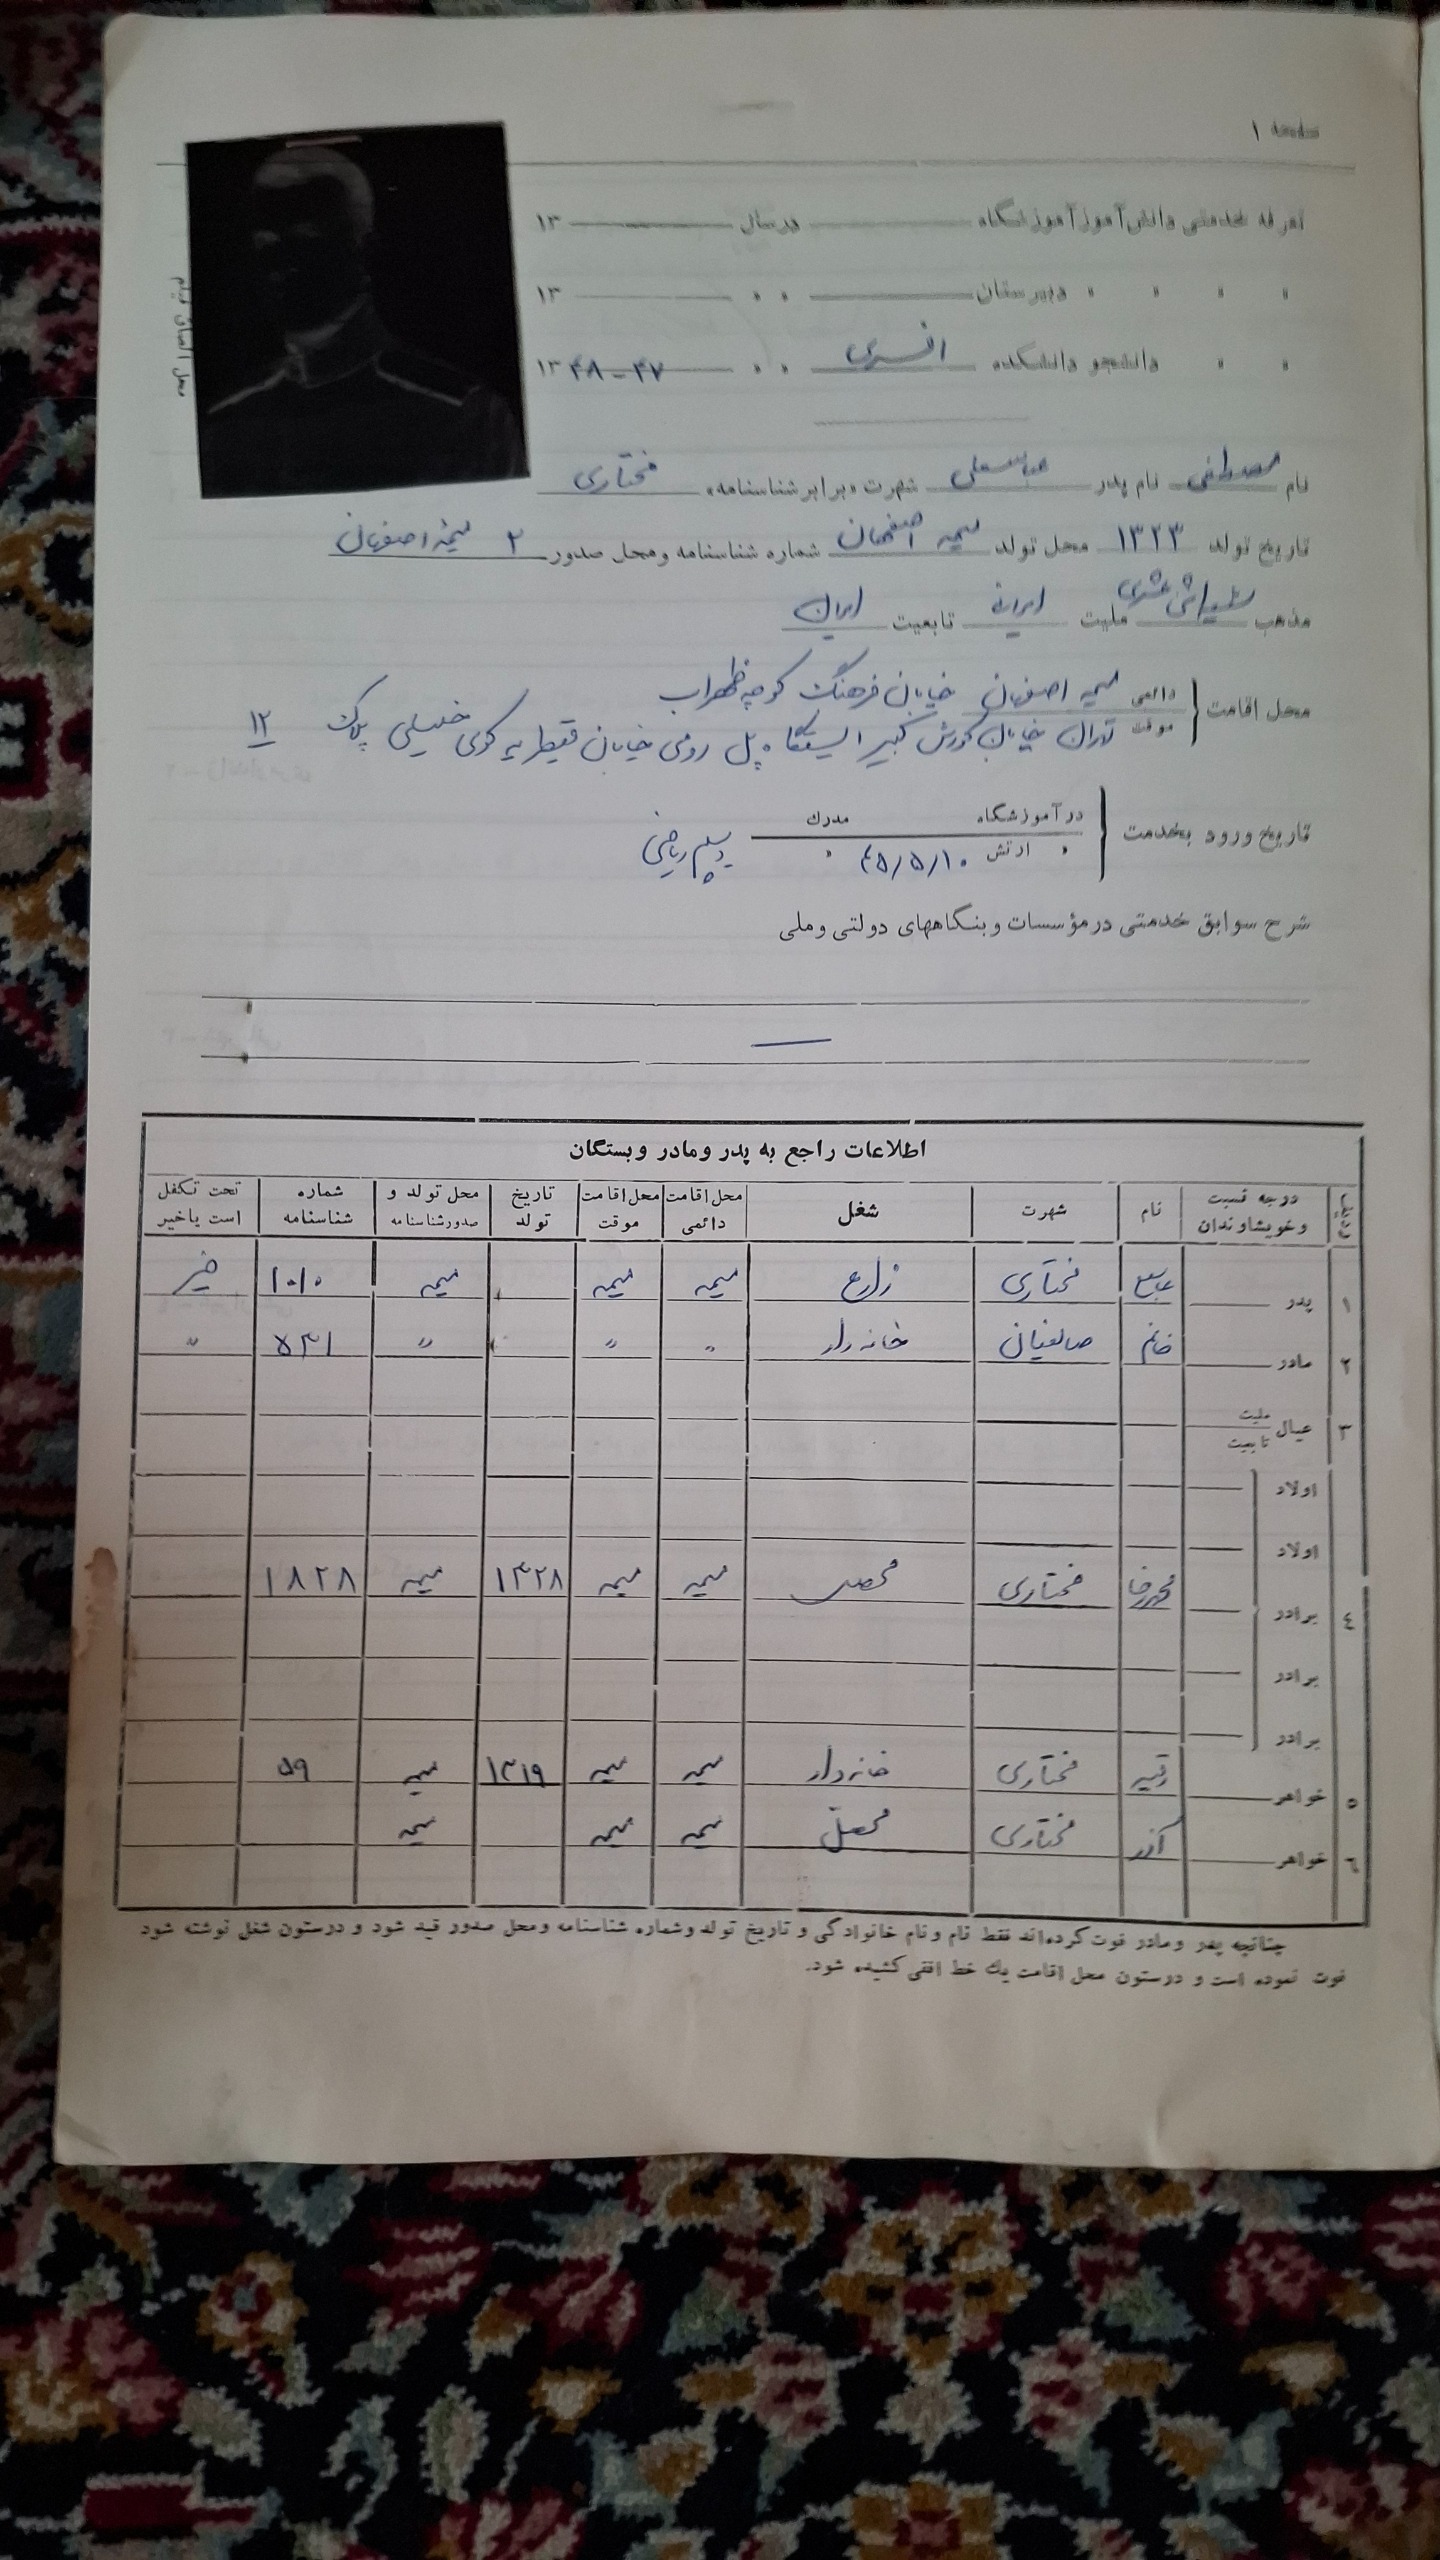 صفحه ۱
تعرفه خدمتی دانش‌آموز آموزشگاه در سال ۱۳
» » » » دبیرستان » » ۱۳
» » دانشجو دانشکده افسری » » ۱۳۴۸-۴۷
محل الصاق
نام مصطفی نام پدر عباسعلی شهرت «برابر شناسنامه» مختاری
تاریخ تولد ۱۳۲۳ محل تولد میمه اصفهان شماره شناسنامه و محل صدور ۲ میمه اصفهان
مذهب شیعه اثنی عشری ملیت ایرانی تابعیت ایران
محل اقامت دائمی میمه اصفهان خیابان فرهنگ کوچه ظهراب
موقت تهران خیابان کورش کبیر ایستگاه پل رومی خیابان قیطریه کوی خلیلی پلاک ۱۲
تاریخ ورود بخدمت در آموزشگاه مدرک
» ارتش ۴۵/۵/۱۰ » دیپلم ریاضی
شرح سوابق خدمتی در مؤسسات و بنگاههای دولتی و ملی
اطلاعات راجع به پدر و مادر و بستگان
ردیف درجه نسبت و خویشاوندان نام شهرت شغل محل اقامت دائمی محل اقامت موقت تاریخ تولد محل تولد و صدور شناسنامه شماره شناسنامه تحت تکفل است یا خیر
۱ پدر عباسعلی مختاری زارع میمه میمه میمه ۱۰۱۰ خیر
۲ مادر خانم صالحیان خانه‌دار » » » ۵۳۱ »
۳ عیال ملیت تابعیت
اولاد
اولاد
۴ برادر محمدرضا مختاری محصل میمه میمه ۱۳۲۸ میمه ۱۸۲۸
برادر
برادر
۵ خواهر رقیه مختاری خانه‌دار میمه میمه ۱۳۱۹ میمه ۵۹
۶ خواهر آذر مختاری محصل میمه میمه میمه
چنانچه پدر و مادر فوت کرده‌اند فقط نام و نام خانوادگی و تاریخ تولد و شماره شناسنامه و محل صدور قید شود و در ستون شغل نوشته شود
فوت نموده است و در ستون محل اقامت یك خط افقی کشیده شود.